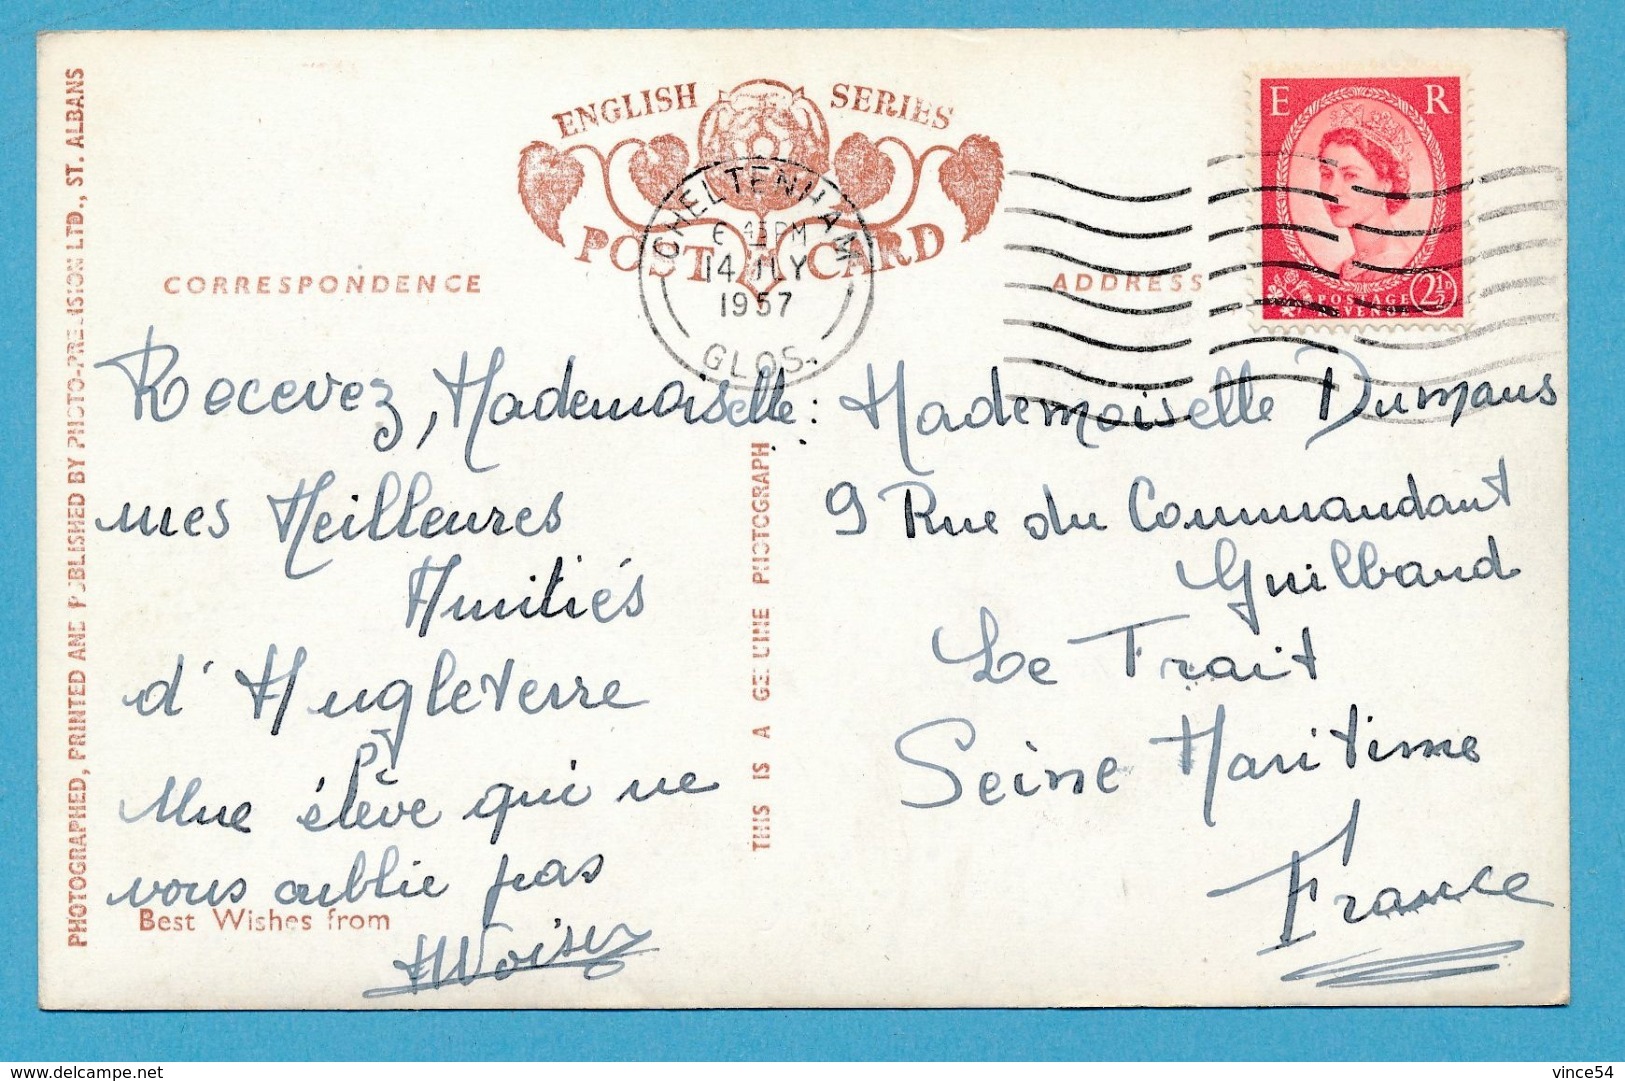 ENGLISH SERIES
POST CARD
CHELTENHAM
6 45 PM
14 JLY
1957
GLOS.
E R
POSTAGE
REVENUE
2½D
CORRESPONDENCE
ADDRESS
Recevez, Mademoiselle:
mes Meilleures
Amitiés
d'Angleterre
Une élève qui ne
vous oublie pas
Best Wishes from
Mademoiselle Dumans
9 Rue du Commandant
Guilbaud
Le Trait
Seine Maritime
France
PHOTOGRAPHED, PRINTED AND PUBLISHED BY PHOTO-PRECISION LTD., ST. ALBANS
THIS IS A GENUINE PHOTOGRAPH
www.delcampe.net
vince54